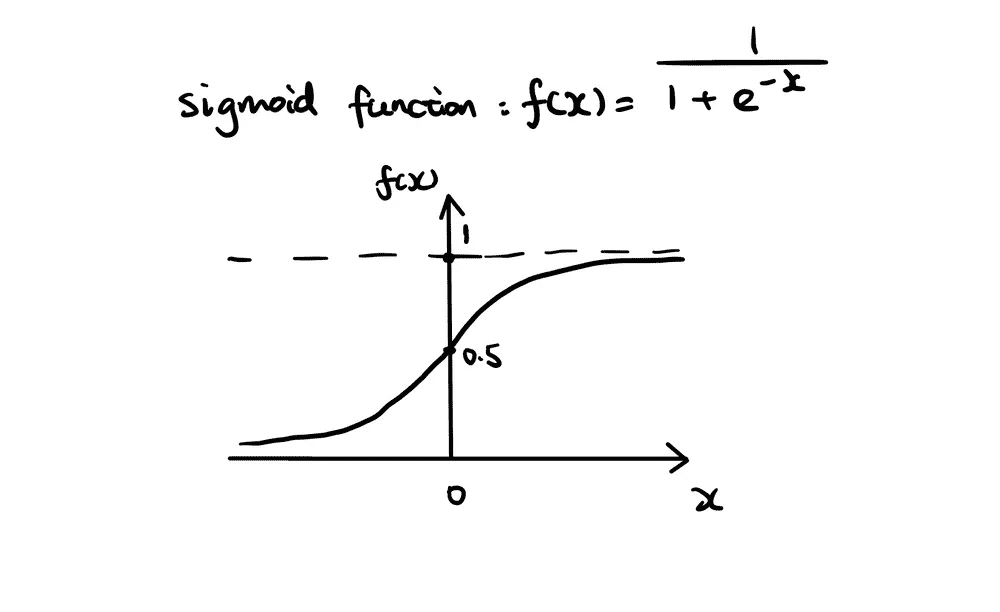 sigmoid function : f(x) = 1 / (1 + e^-x)
f(x)
1
0.5
0
x